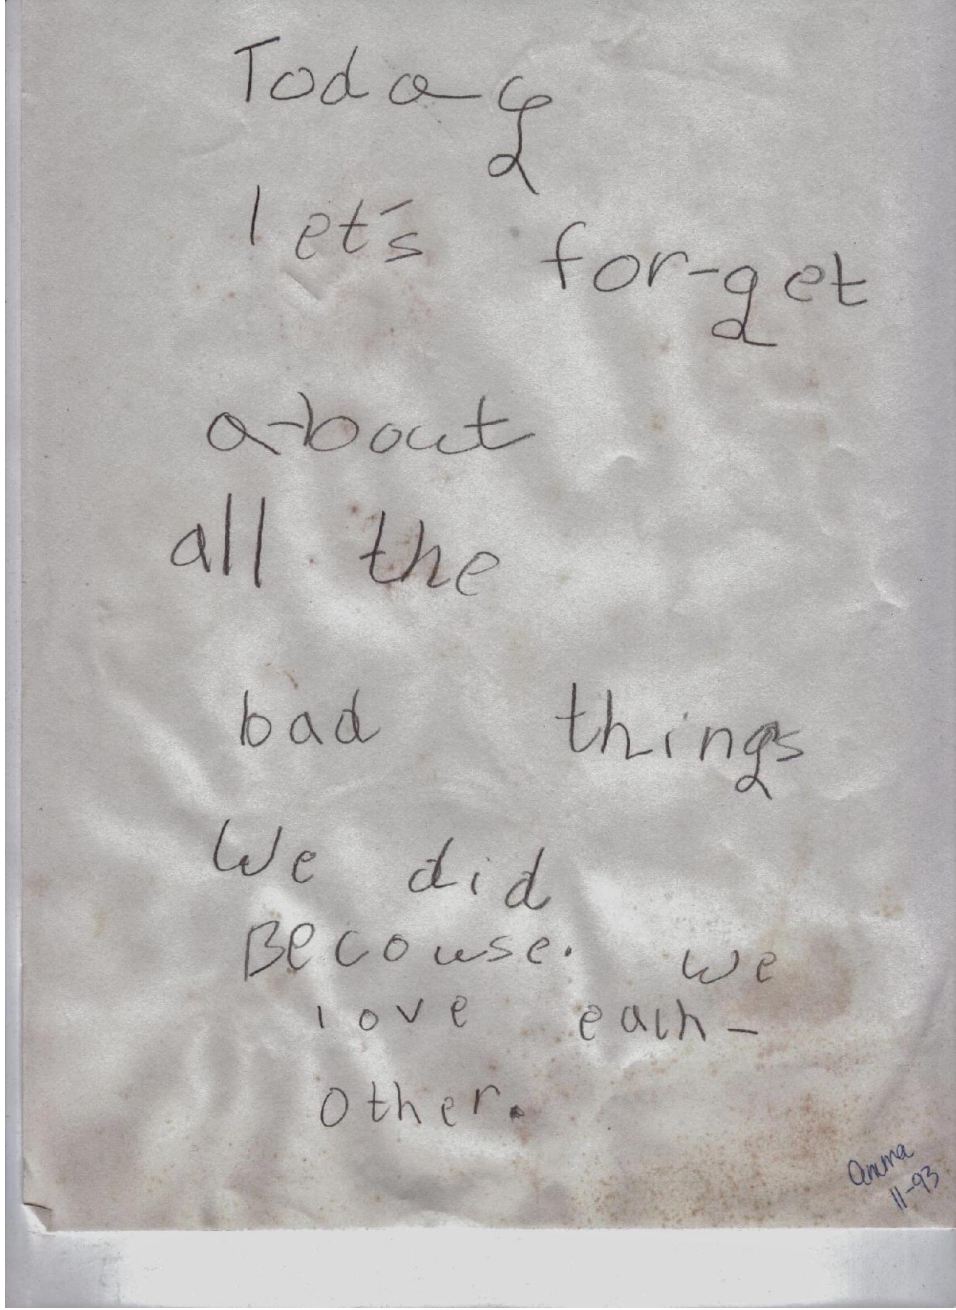 Today
let's for-get
a-bout
all the
bad things
We did
BEcouse. we
love each-
other.
Anma
11-93